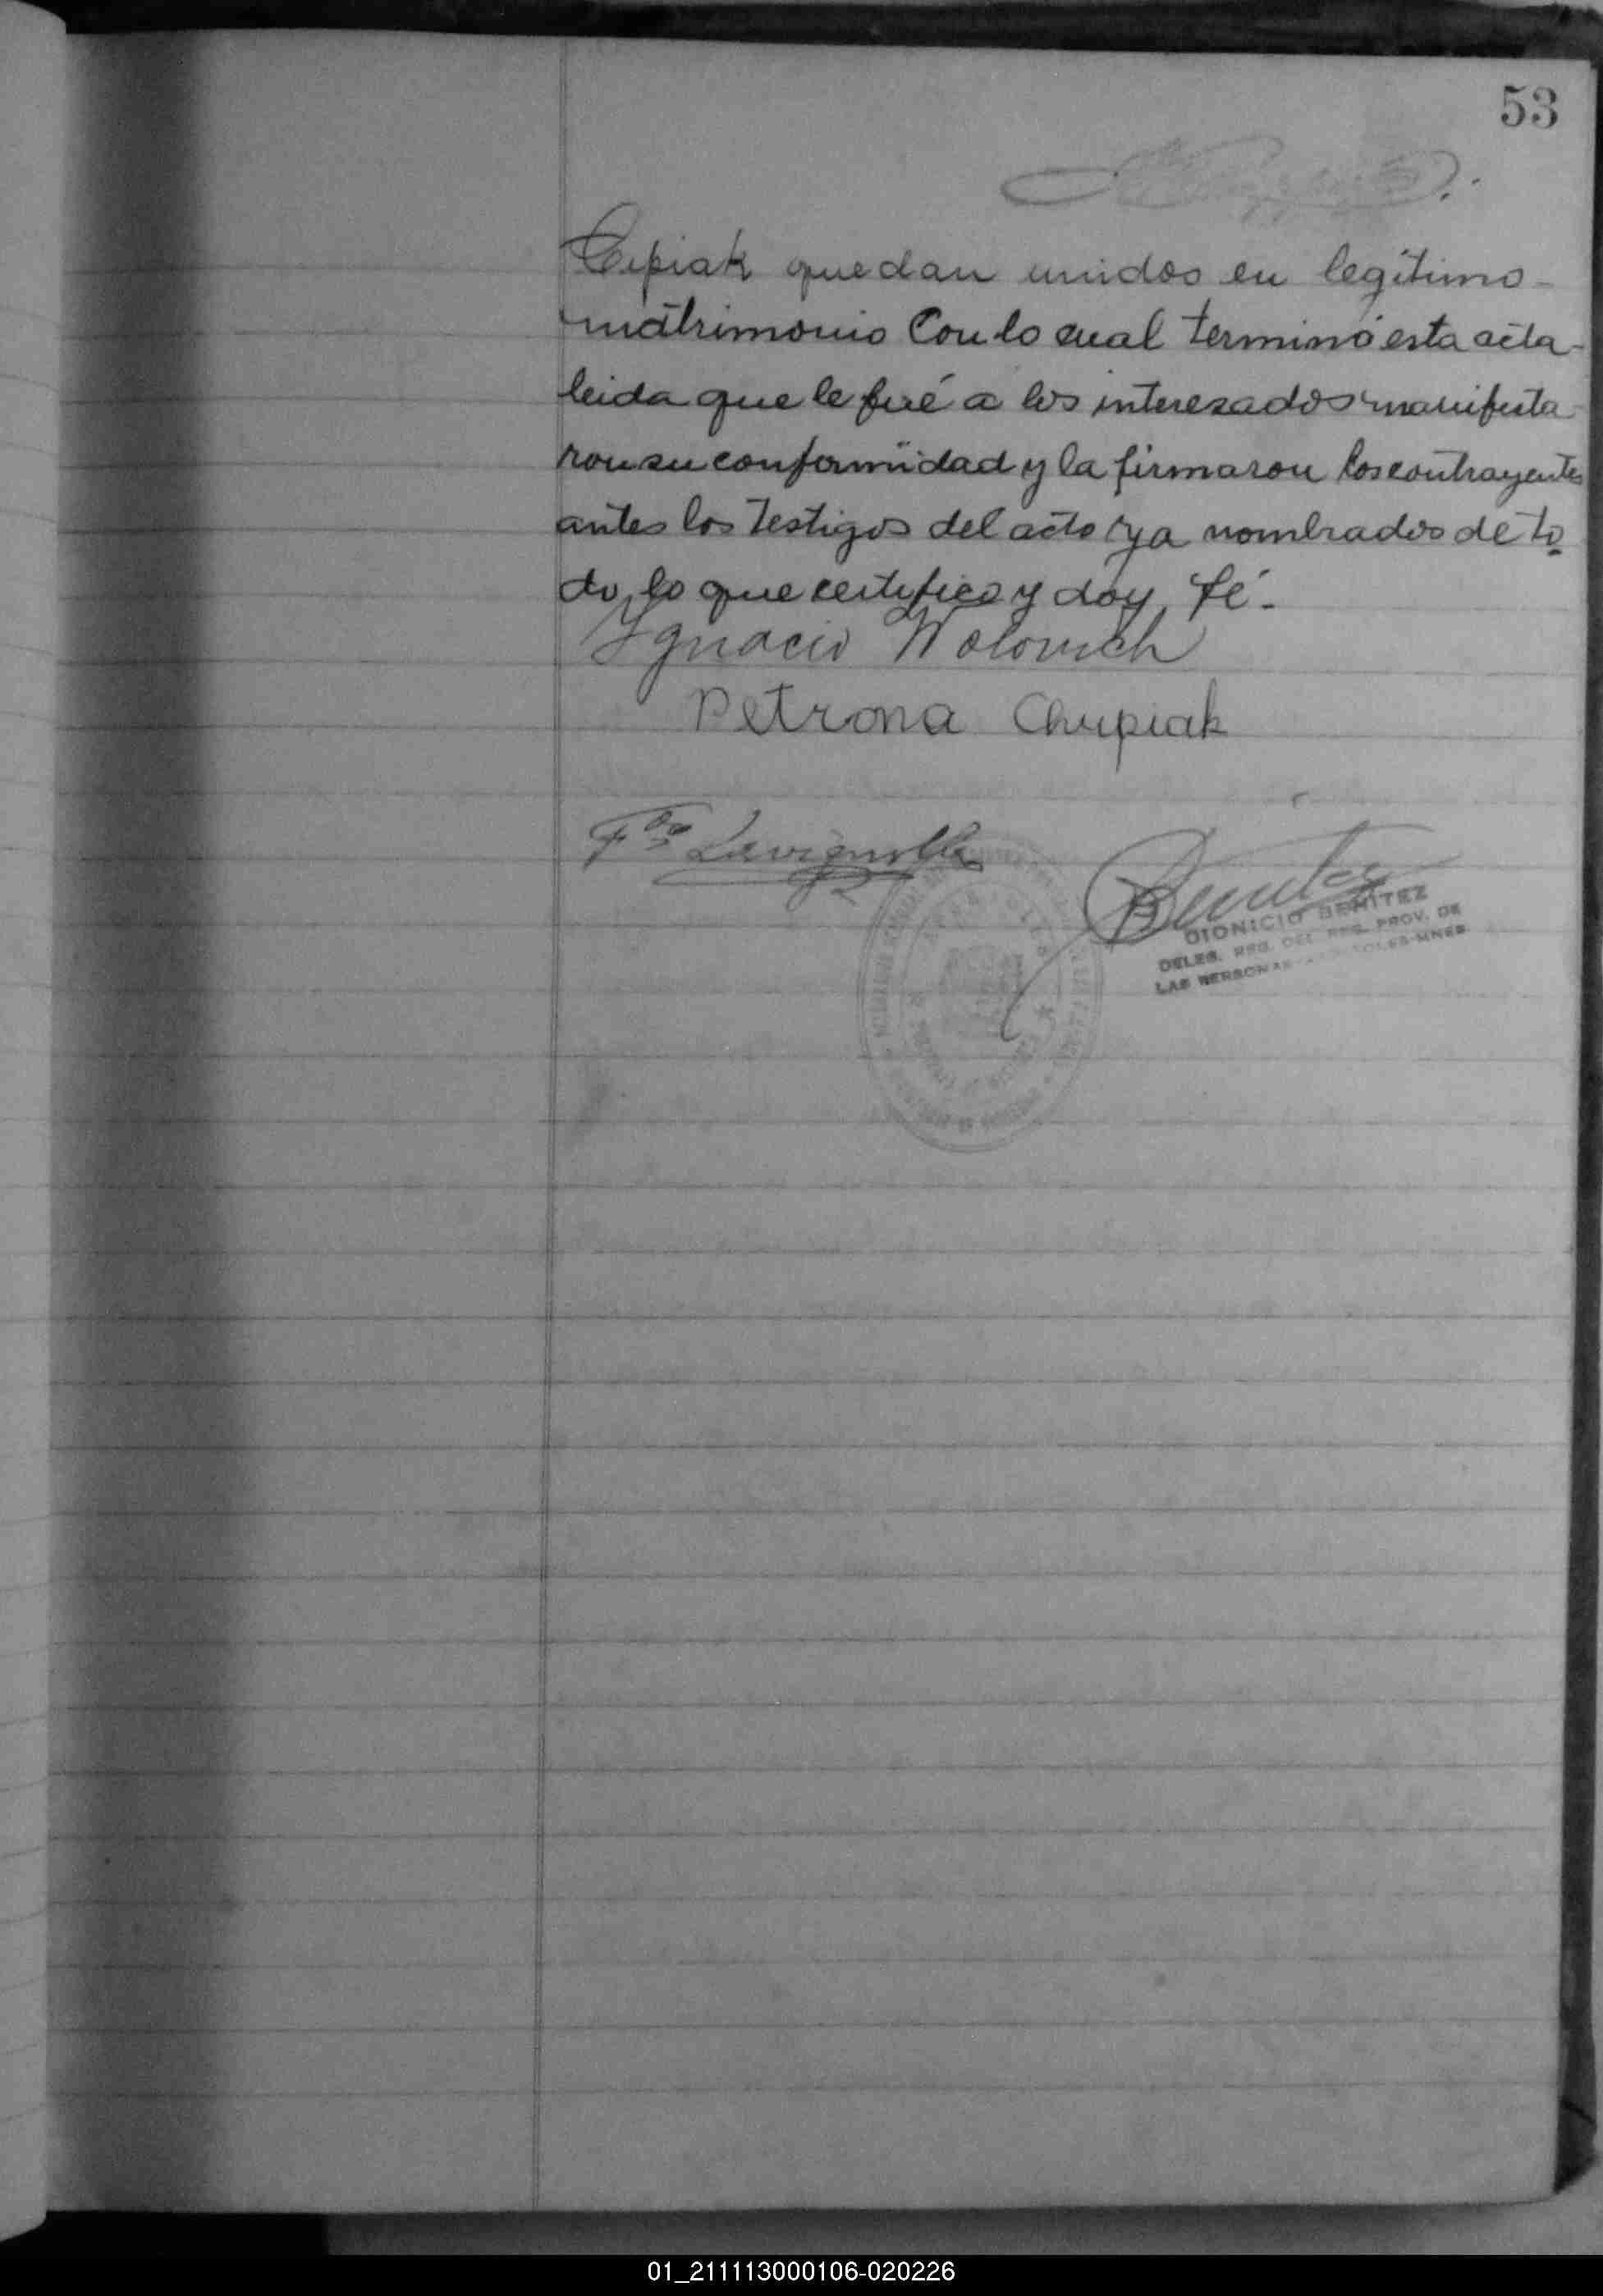 53
Cepiak quedan unidos en legítimo-
matrimonio Con lo cual terminó esta acta-
leida que le fué a los interesados manifesta
ron su conformidad y la firmaron los contrayentes
antes los testigos del acto ya nombrados de to
do lo que certifico y doy fé-
Ygnacio Wolovich
Petrona Chepiak
Benitez
DIONICIO BENÍTEZ
DELEG. REG. DEL REG. PROV. DE
LAS PERSONAS
01_211113000106-020226